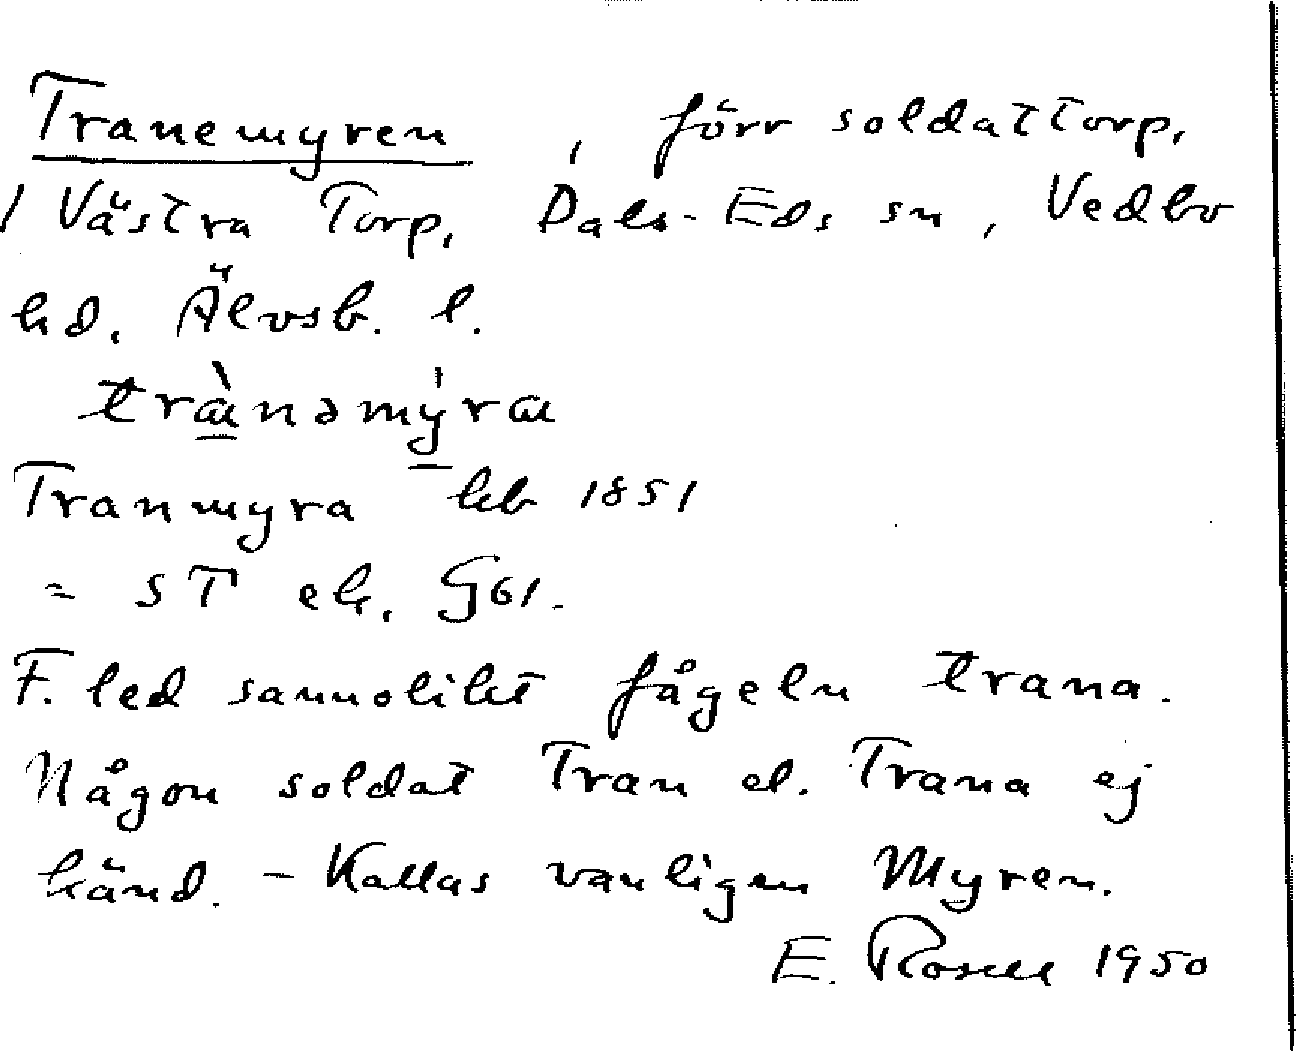 Tranemyren, förr soldattorp,
i Västra Torp, Dals-Eds sn, Vedbo
hd. Älvsb. l.
trànəmýra
Tranmyra hb 1851
= ST ek. G61.
F. led sannolikt fågeln trana.
Någon soldat Tran el. Trana ej
känd. – Kallas vanligen Myren.
E. Rosell 1950